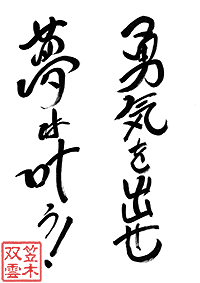 勇気を出せ
夢は叶う!
笠木
双雲